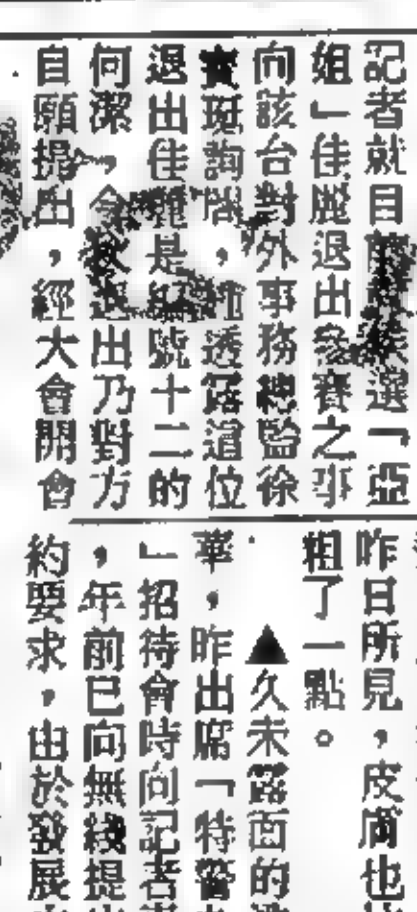 記者就目前候選「亞
姐」佳麗退出參賽之事
向該台對外事務總監徐
寶珽詢問，她透露這位
退出佳麗是編號十二的
何潔，今次退出乃對方
自願提出，經大會開會
昨日所見，皮膚也
粗了一點。
▲久未露面的
華，昨出席「特警
」招待會時向記者
，年前已向無綫提
約要求，由於發展